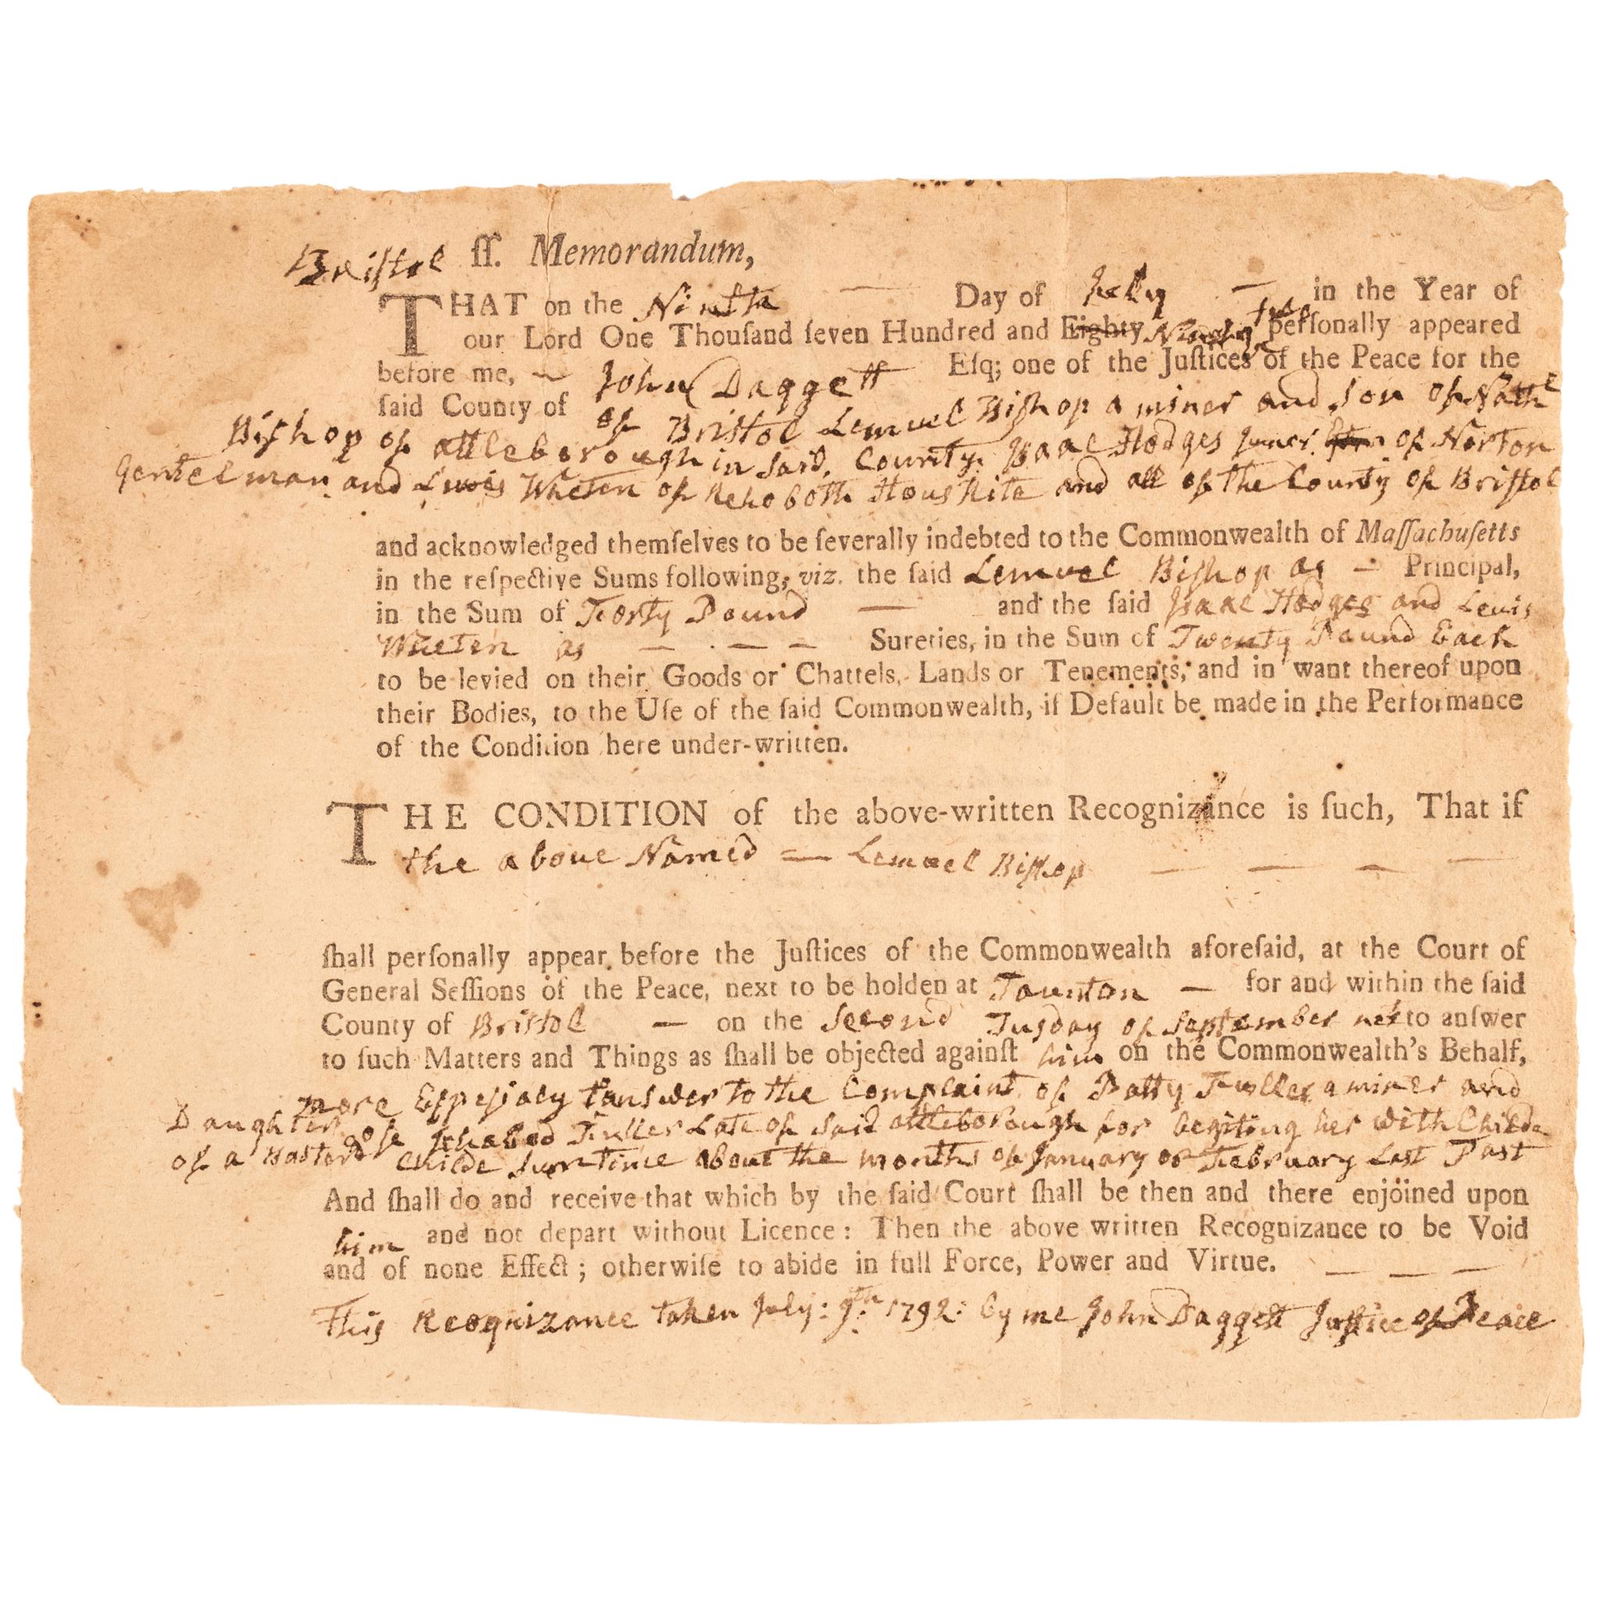 Bristol ſſ. Memorandum,
THAT on the Ninth — Day of July — in the Year of
our Lord One Thouſand ſeven Hundred and Eighty Ninety two perſonally appeared
before me, John Daggett Eſq; one of the Juſtices of the Peace for the
ſaid County of of Bristol Lemuel Biſhop a miner and Son of Nathl
Biſhop of attleborough in Said County. Iſaac Hodges juner of Norton
Gentelman and Lewis Wheten of Rehoboth Houſrite and all of the County of Briſtol
and acknowledged themſelves to be ſeverally indebted to the Commonwealth of Maſſachuſetts
in the reſpective Sums following, viz. the ſaid Lemuel Biſhop as — Principal,
in the Sum of Forty Pound — and the ſaid Iſaac Hodges and Lewis
Wheten as — . — — Sureties, in the Sum of Twenty Pound Each
to be levied on their Goods or Chattels, Lands or Tenements, and in want thereof upon
their Bodies, to the Uſe of the ſaid Commonwealth, if Default be made in the Performance
of the Condition here under-written.
THE CONDITION of the above-written Recognizance is ſuch, That if
the above Named — Lemuel Biſhop — — — —
ſhall perſonally appear before the Juſtices of the Commonwealth aforeſaid, at the Court of
General Seſſions of the Peace, next to be holden at Taunton — for and within the ſaid
County of Bristol — on the Second Tusday of September next to anſwer
to ſuch Matters and Things as ſhall be objected againſt him on the Commonwealth's Behalf,
more Eſpeſialy tanswer to the Complaint of Patty Fuller a miner and
Daughter of Ichabod Fuller Late of Said attleborough for begiting her with Childe
of a Bastard Childe Sumtime about the months of January or February Last Past
And ſhall do and receive that which by the ſaid Court ſhall be then and there enjoined upon
him and not depart without Licence: Then the above written Recognizance to be Void
and of none Effect; otherwiſe to abide in full Force, Power and Virtue. — — —
This Recognizance taken July: 9th: 1792: by me John Daggett Justice of Peace